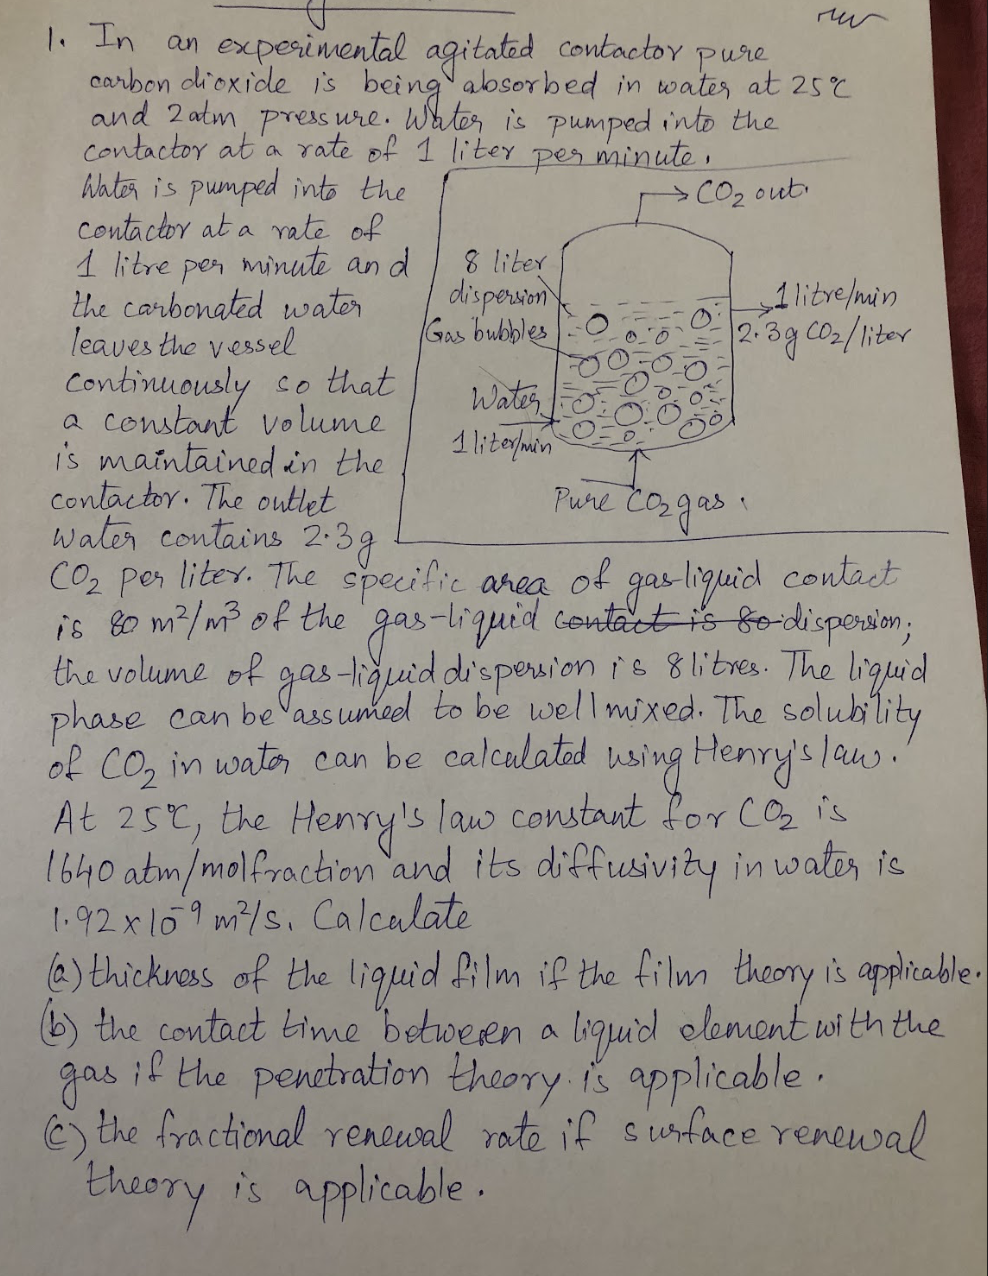 1. In an experimental agitated contactor pure
carbon dioxide is being absorbed in water at 25°C
and 2 atm pressure. Water is pumped into the
contactor at a rate of 1 liter per minute.
Water is pumped into the
contactor at a rate of
1 litre per minute and
the carbonated water
leaves the vessel
continuously so that
a constant volume
is maintained in the
contactor. The outlet
water contains 2.3g
CO₂ out
8 liter
dispersion
Gas bubbles
1 litre/min
2.3g CO₂/liter
Water
1 liter/min
Pure CO₂ gas.
CO₂ per liter. The specific area of gas-liquid contact
is 80 m²/m³ of the gas-liquid contact is 80 dispersion;
the volume of gas-liquid dispersion is 8 litres. The liquid
phase can be assumed to be well mixed. The solubility
of CO₂ in water can be calculated using Henry's law.
At 25°C, the Henry's law constant for CO₂ is
1640 atm/molfraction and its diffusivity in water is
1.92 x 10⁻⁹ m²/s. Calculate
(a) thickness of the liquid film if the film theory is applicable.
(b) the contact time between a liquid element with the
gas if the penetration theory is applicable.
(c) the fractional renewal rate if surface renewal
theory is applicable.